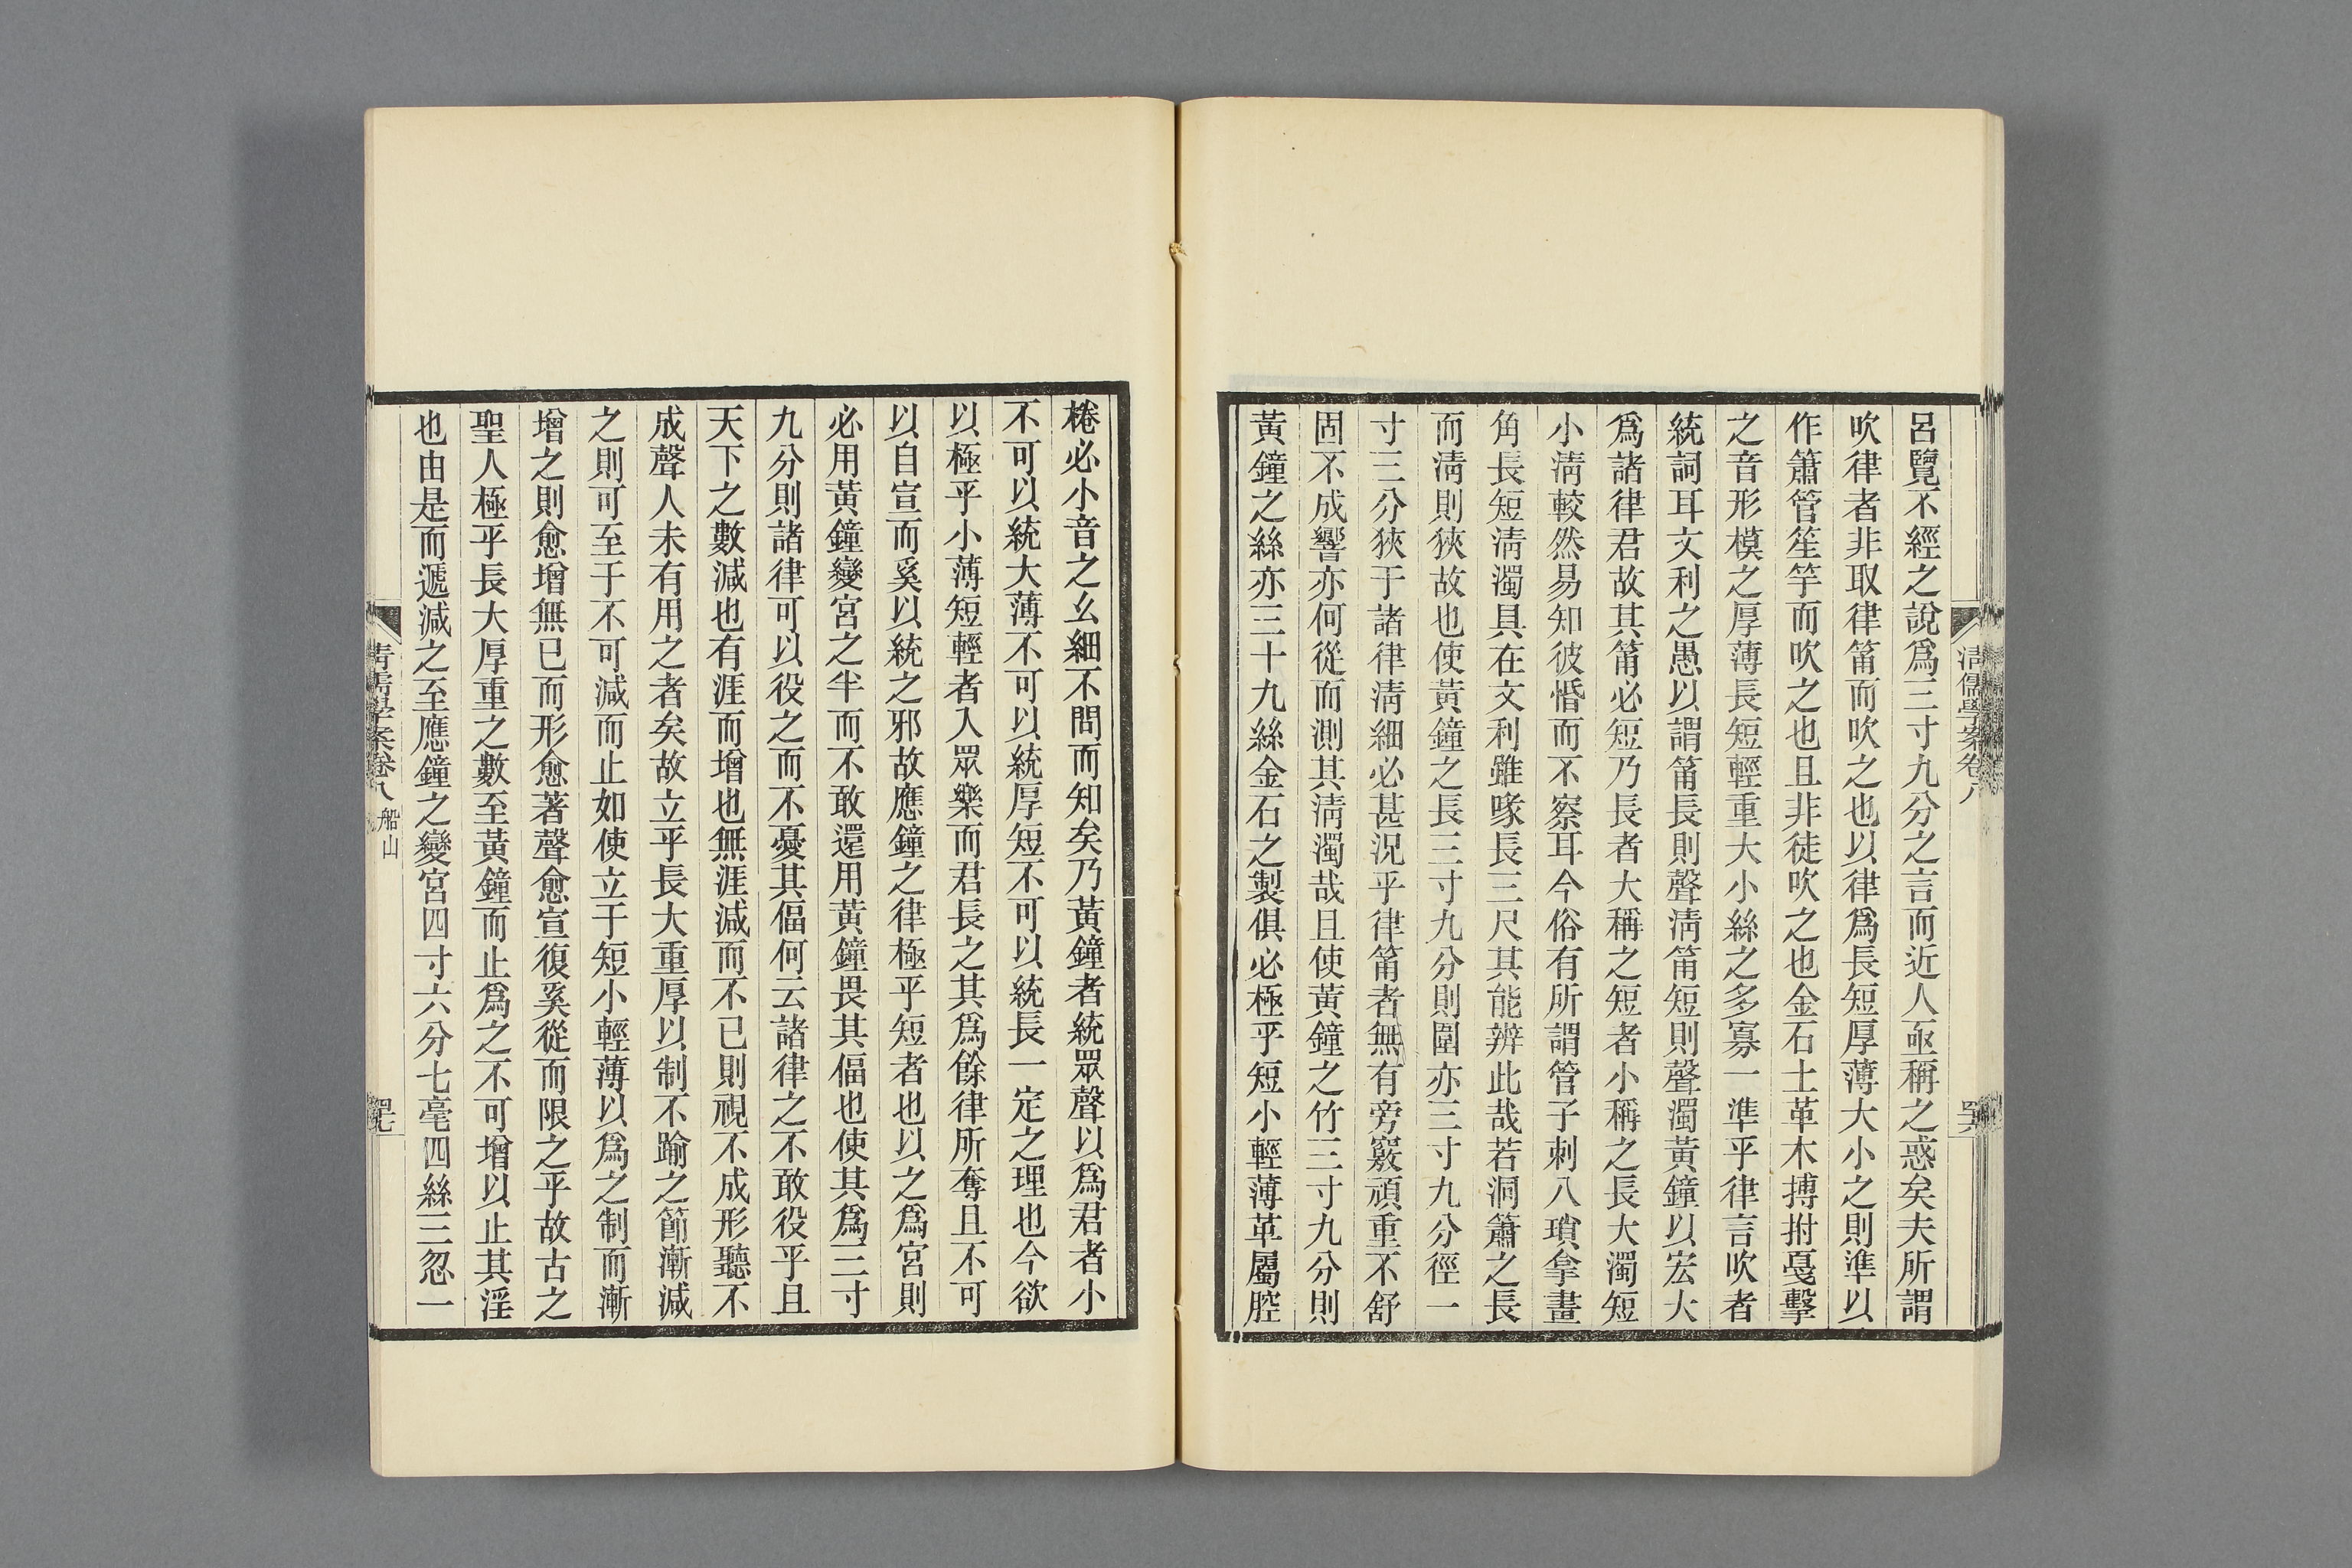 呂覽不經之說爲三寸九分之言而近人亟稱之惑矣夫所謂
吹律者非取律筩而吹之也以律爲長短厚薄大小之則準以
作簫管笙竽而吹之也且非徒吹之也金石土革木搏拊戛擊
之音形模之厚薄長短輕重大小絲之多寡一準乎律言吹者
統詞耳文利之愚以謂筩長則聲淸筩短則聲濁黃鐘以宏大
爲諸律君故其筩必短乃長者大稱之短者小稱之長大濁短
小淸較然易知彼惛而不察耳今俗有所謂管子刺八瑣拿畫
角長短淸濁具在文利雖喙長三尺其能辨此哉若洞簫之長
而淸則狹故也使黃鐘之長三寸九分則圍亦三寸九分徑一
寸三分狹于諸律淸細必甚況乎律筩者無有旁竅頑重不舒
固不成響亦何從而測其淸濁哉且使黃鐘之竹三寸九分則
黃鐘之絲亦三十九絲金石之製俱必極乎短小輕薄革屬腔
棬必小音之幺細不問而知矣乃黃鐘者統眾聲以爲君者小
不可以統大薄不可以統厚短不可以統長一定之理也今欲
以極乎小薄短輕者入眾樂而君長之其爲餘律所奪且不可
以自宣而奚以統之邪故應鐘之律極乎短者也以之爲宮則
必用黃鐘變宮之半而不敢還用黃鐘畏其偪也使其爲三寸
九分則諸律可以役之而不憂其偪何云諸律之不敢役乎且
天下之數減也有涯而增也無涯減而不已則視不成形聽不
成聲人未有用之者矣故立乎長大重厚以制不踰之節漸減
之則可至于不可減而止如使立于短小輕薄以爲之制而漸
增之則愈增無已而形愈著聲愈宣復奚從而限之乎故古之
聖人極乎長大厚重之數至黃鐘而止爲之不可增以止其淫
也由是而遞減之至應鐘之變宮四寸六分七毫四絲三忽一
清儒學案卷八
淸儒學案卷八 船山